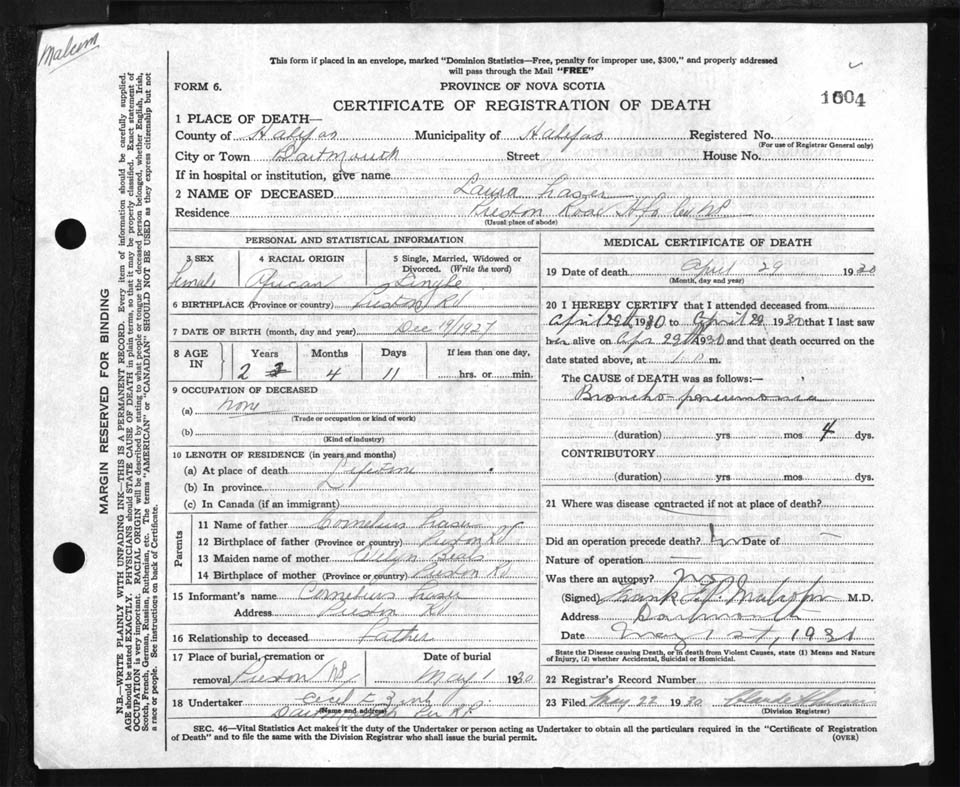 Malcom
This form if placed in an envelope, marked "Dominion Statistics—Free, penalty for improper use, $300," and properly addressed
will pass through the Mail "FREE"
FORM 6.
PROVINCE OF NOVA SCOTIA
CERTIFICATE OF REGISTRATION OF DEATH
1 PLACE OF DEATH—
County of Halifax Municipality of Halifax Registered No.
(For use of Registrar General only)
City or Town Dartmouth Street House No.
If in hospital or institution, give name
2 NAME OF DECEASED Laura
Residence Preston Road Hfx
(Usual place of abode)
PERSONAL AND STATISTICAL INFORMATION
3 SEX 4 RACIAL ORIGIN 5 Single, Married, Widowed or
Divorced. (Write the word)
Female African Single
6 BIRTHPLACE (Province or country) Preston Rd
7 DATE OF BIRTH (month, day and year) Dec 19/1927
8 AGE IN Years Months Days If less than one day,
2 4 11 hrs. or min.
9 OCCUPATION OF DECEASED
(a) none
(Trade or occupation or kind of work)
(b)
(Kind of industry)
10 LENGTH OF RESIDENCE (in years and months)
(a) At place of death Lifetime
(b) In province
(c) In Canada (if an immigrant)
Parents
11 Name of father Cornelius
12 Birthplace of father (Province or country) Preston Rd
13 Maiden name of mother Evelyn Beals
14 Birthplace of mother (Province or country) Preston Rd
15 Informant's name Cornelius
Address Preston Rd
16 Relationship to deceased Father
17 Place of burial, cremation or Date of burial
removal Preston May 1 1930
18 Undertaker Cecil E. Zink
(Name and address)
Dartmouth
MEDICAL CERTIFICATE OF DEATH
19 Date of death April 29 1930
(Month, day and year)
20 I HEREBY CERTIFY that I attended deceased from
April 29th 1930 to April 29 1930 that I last saw
her alive on Apr 29th 1930 and that death occurred on the
date stated above, at m.
The CAUSE of DEATH was as follows:—
Broncho-pneumonia
(duration) yrs mos 4 dys.
CONTRIBUTORY
(duration) yrs mos dys.
21 Where was disease contracted if not at place of death?
Did an operation precede death? Date of —
Nature of operation —
Was there an autopsy? no
(Signed) Frank Malcolm M.D.
Address Dartmouth
Date May 1st, 1931
State the Disease causing Death, or in death from Violent Causes, state (1) Means and Nature
of Injury, (2) whether Accidental, Suicidal or Homicidal.
22 Registrar's Record Number
23 Filed May 22 1930
(Division Registrar)
SEC. 46—Vital Statistics Act makes it the duty of the Undertaker or person acting as Undertaker to obtain all the particulars required in the "Certificate of Registration
of Death" and to file the same with the Division Registrar who shall issue the burial permit. (OVER)
MARGIN RESERVED FOR BINDING
N.B.—WRITE PLAINLY WITH UNFADING INK—THIS IS A PERMANENT RECORD. Every item of information should be carefully supplied.
AGE should be stated EXACTLY. PHYSICIANS should STATE CAUSE OF DEATH in plain terms, so that it may be properly classified. Exact statement of
OCCUPATION is very important. RACIAL ORIGIN will be described by stating to what people or tongue the deceased person belonged, whether English, Irish,
Scotch, French, German, Russian, Ruthenian, etc. The terms "AMERICAN" or "CANADIAN" SHOULD NOT BE USED as they express citizenship but not
a race or people. See instructions on back of Certificate.